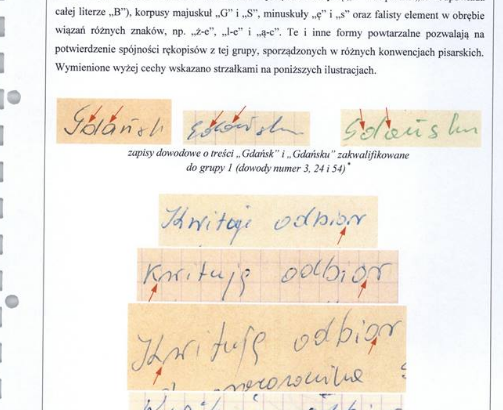 całej literze „B"), korpusy majuskuł „G" i „S", minuskuły „ę" i „s" oraz falisty element w obrębie
wiązań różnych znaków, np. „ż-e", „l-e" i „ą-c". Te i inne formy powtarzalne pozwalają na
potwierdzenie spójności rękopisów z tej grupy, sporządzonych w różnych konwencjach pisarskich.
Wymienione wyżej cechy wskazano strzałkami na poniższych ilustracjach.
Gdańsk Gdańsku Gdańsku
zapisy dowodowe o treści „Gdańsk" i „Gdańsku" zakwalifikowane
do grupy 1 (dowody numer 3, 24 i 54)*
Kwituję odbiór
Kwituję odbiór
Kwituję odbiór